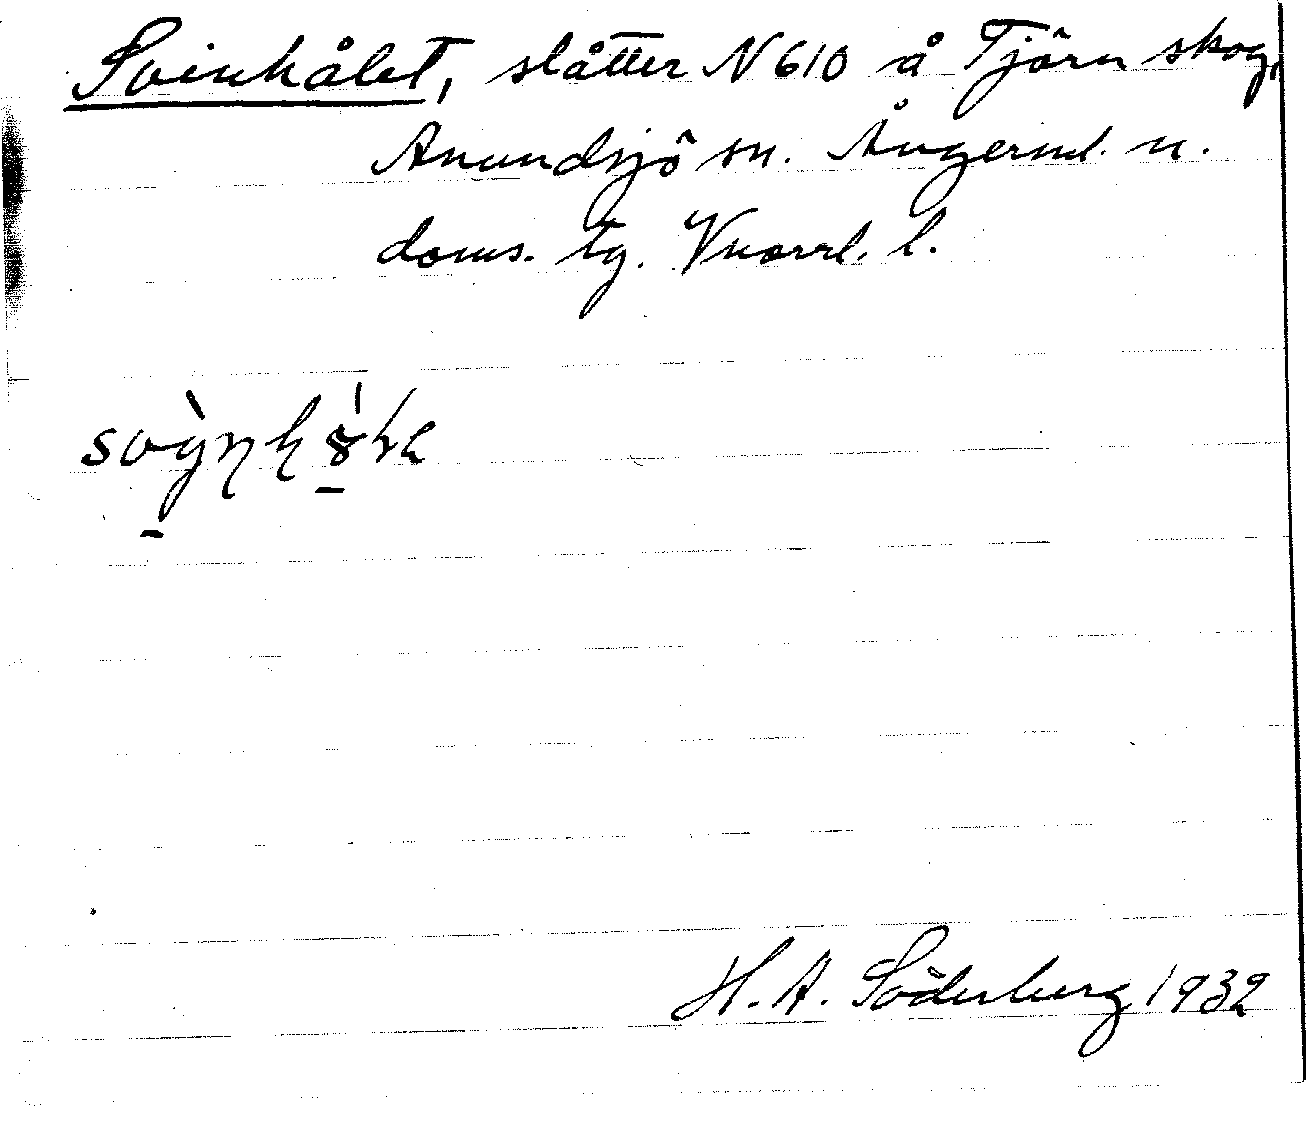 Svinhålet, slåtter N 610 å Tjärn skog,
Anundsjö sn. Ångerml. n.
doms. tg. Vnorrl. l.
H. A. Söderberg 1932